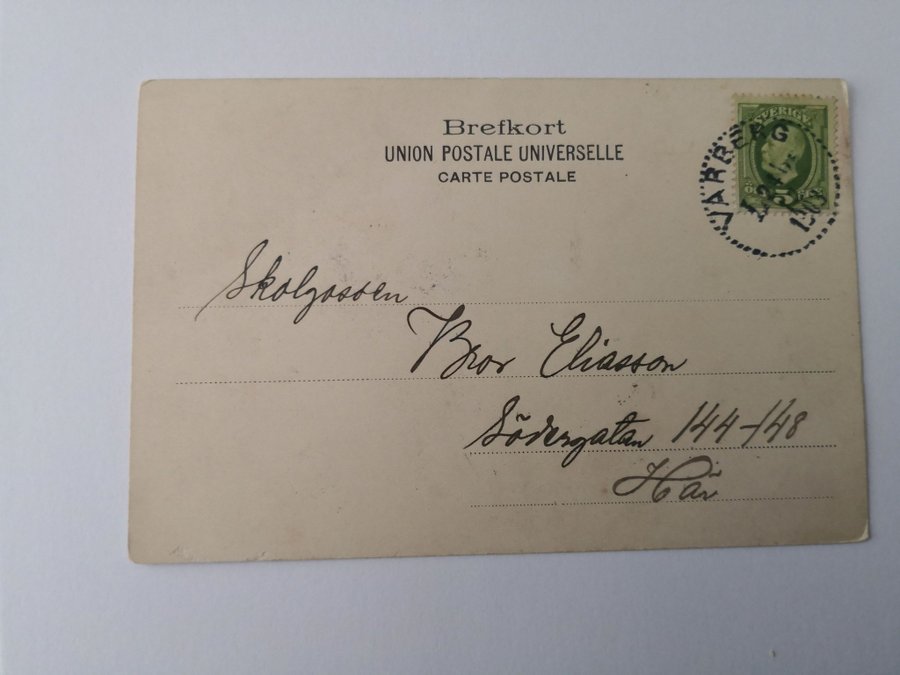 Brefkort
UNION POSTALE UNIVERSELLE
CARTE POSTALE
SVERIGE
VARBERG
24
5
Skolgossen
Bror Eliasson
Södergatan 144-148
Här